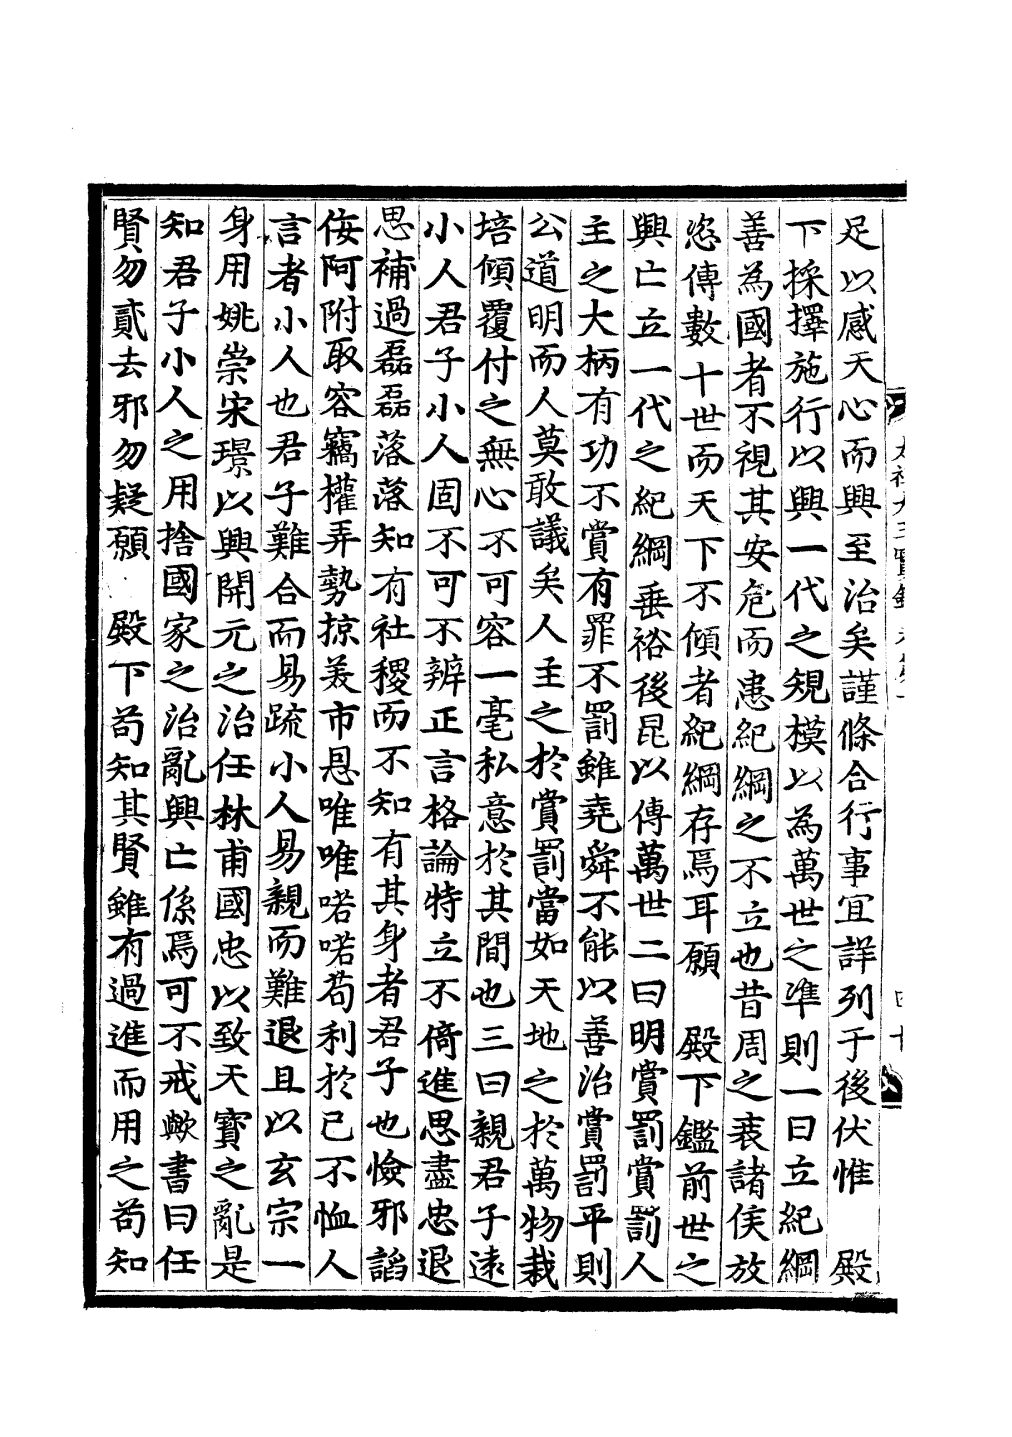 足以感天心而興至治矣謹條合行事宜詳列于後伏惟 殿
下採擇施行以興一代之規模以為萬世之準則一曰立紀綱
善為國者不視其安危而患紀綱之不立也昔周之衰諸侯放
恣傳數十世而天下不傾者紀綱存焉耳願 殿下鑑前世之
興亡立一代之紀綱垂裕後昆以傳萬世二曰明賞罰賞罰人
主之大柄有功不賞有罪不罰雖堯舜不能以善治賞罰平則
公道明而人莫敢議矣人主之於賞罰當如天地之於萬物栽
培傾覆付之無心不可容一毫私意於其間也三曰親君子遠
小人君子小人固不可不辨正言格論特立不倚進思盡忠退
思補過磊磊落落知有社稷而不知有其身者君子也憸邪諂
侫阿附取容竊權弄勢掠美市恩唯唯喏喏苟利於己不恤人
言者小人也君子難合而易疏小人易親而難退且以玄宗一
身用姚崇宋璟以興開元之治任林甫國忠以致天寶之亂是
知君子小人之用捨國家之治亂興亡係焉可不戒歟書曰任
賢勿貳去邪勿疑願 殿下苟知其賢雖有過進而用之苟知